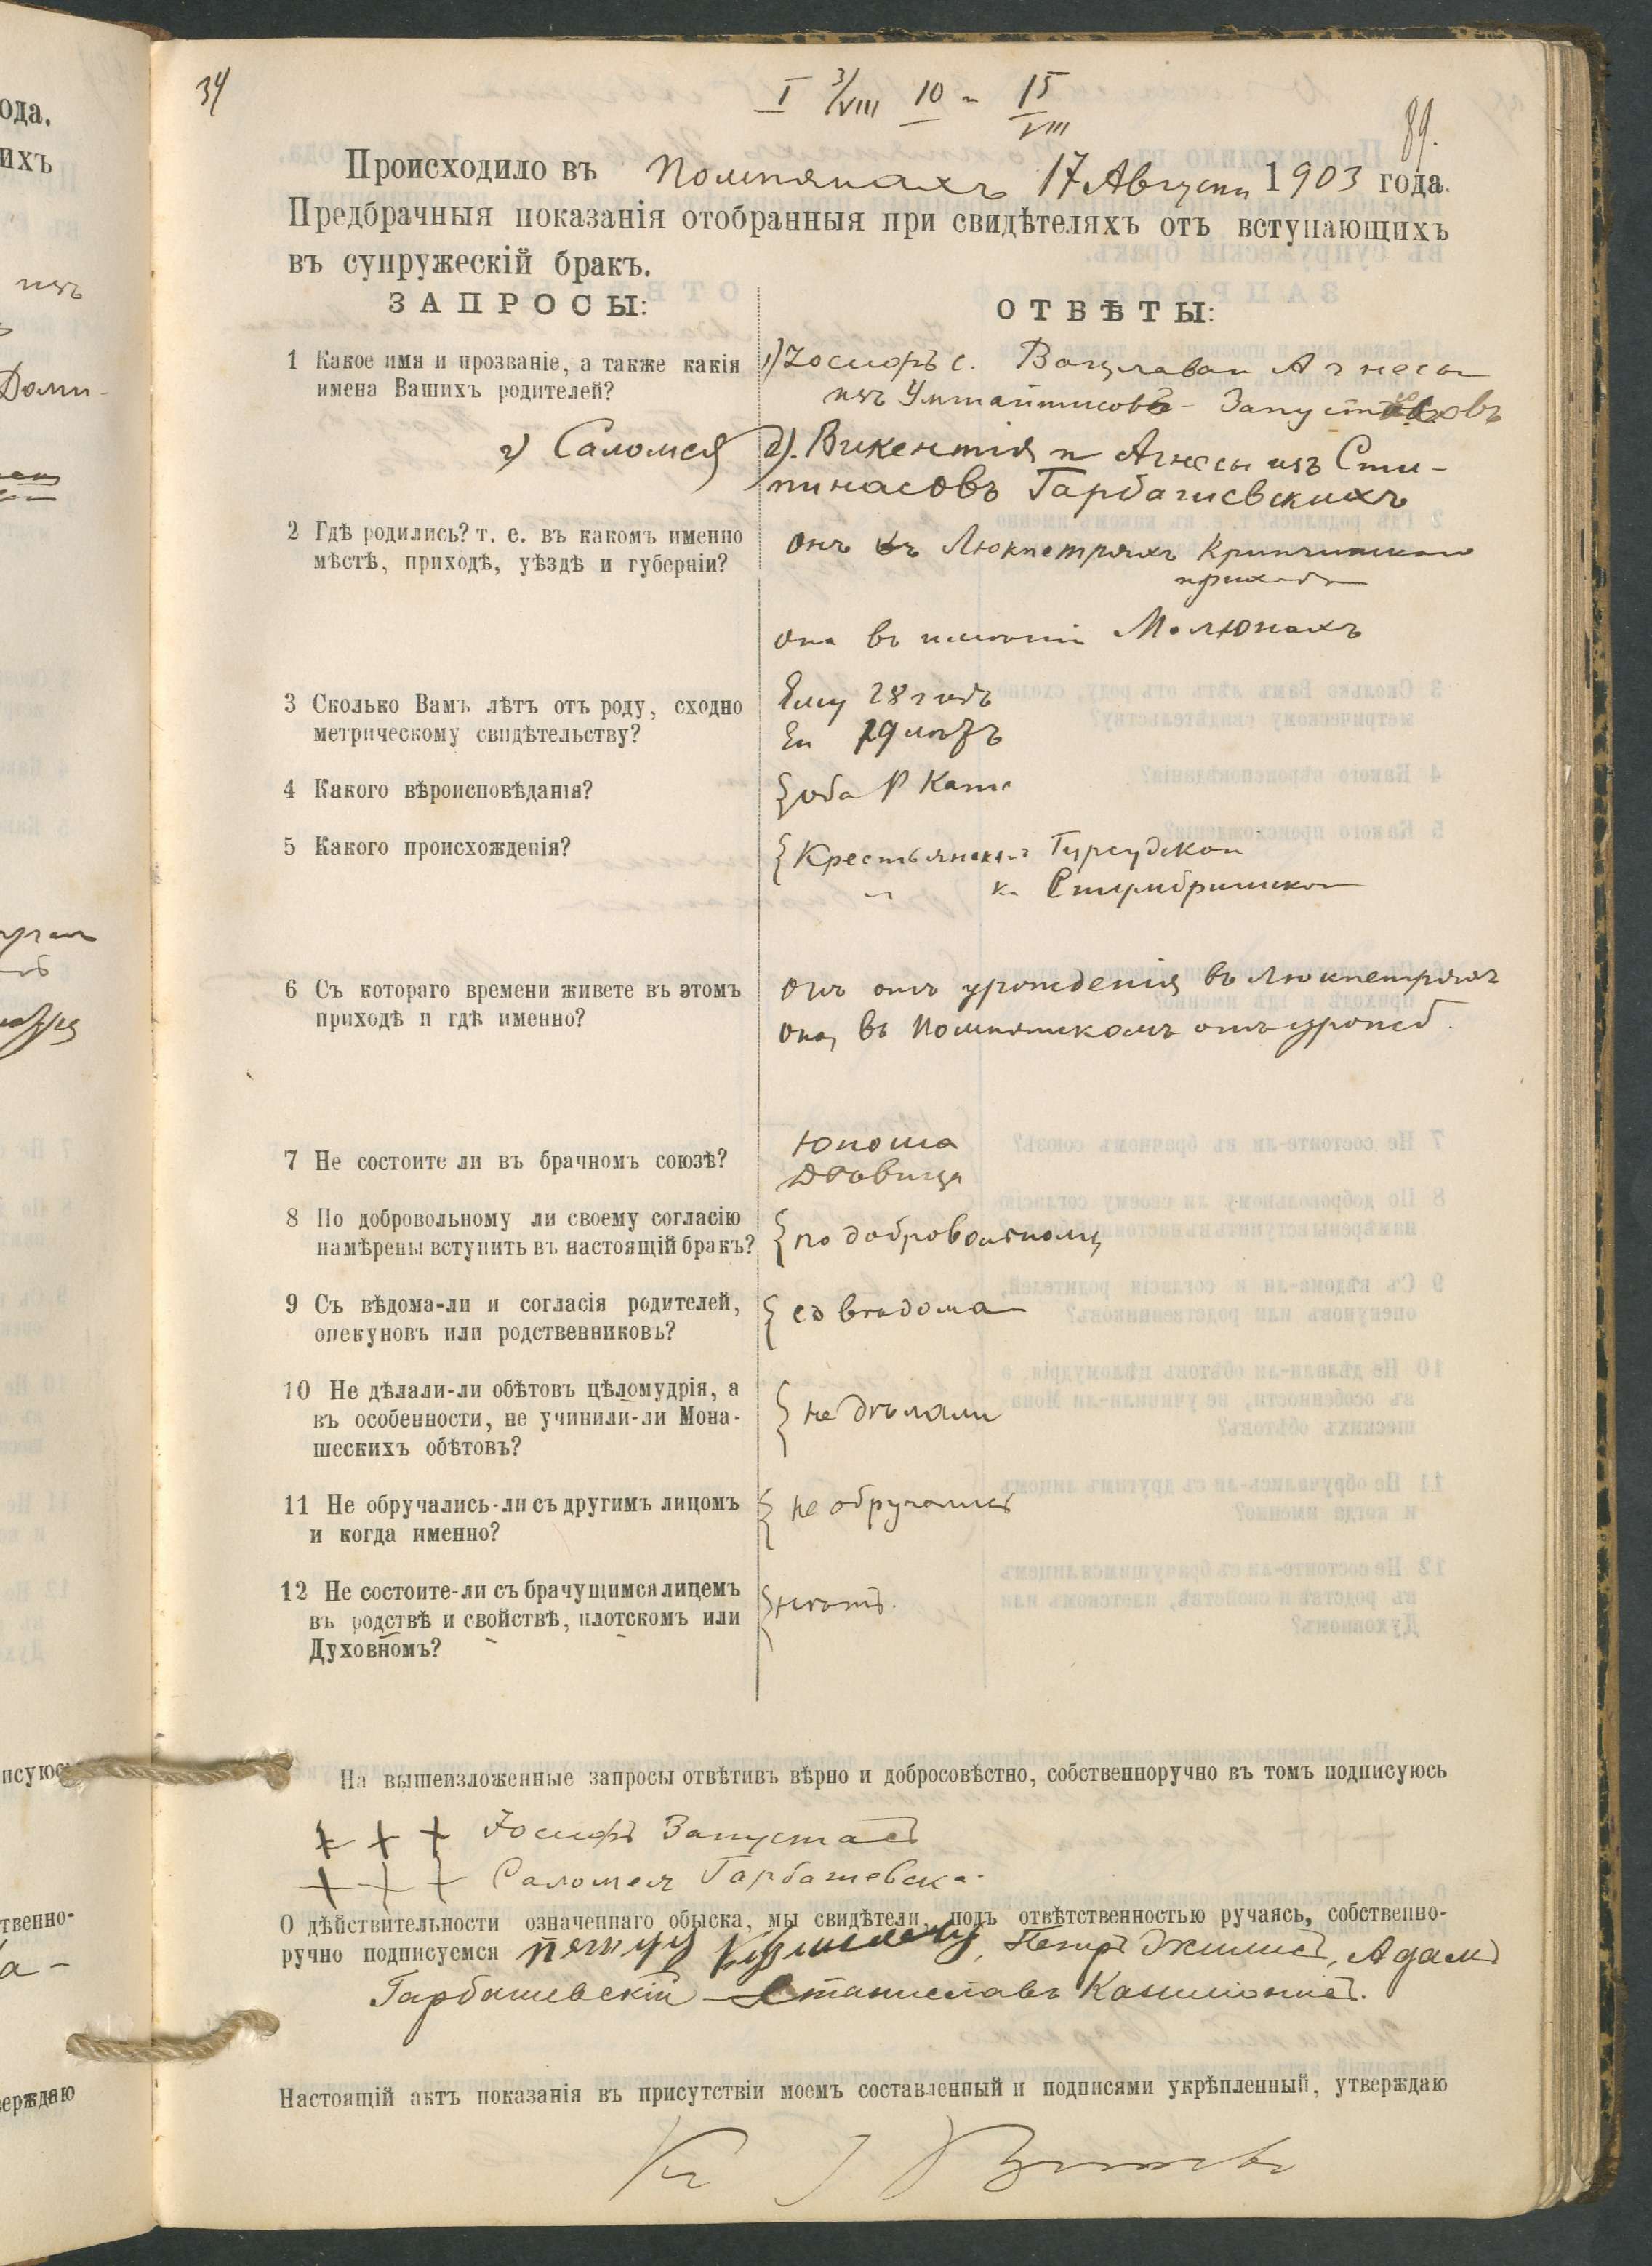 34
I 3/VIII 10 - 15/VIII
89.
Происходило въ Помпянахъ 17 Августа 1903 года.
Предбрачныя показанія отобранныя при свидѣтеляхъ отъ вступающихъ
въ супружескій бракъ.
ЗАПРОСЫ:
ОТВѢТЫ:
1 Какое имя и прозваніе, а также какія
имена Вашихъ родителей?
1) Іосифъ с. Вацлава и Агнесы
изъ
2) Саломея
2). Викентія и Агнесы изъ Сти-
пинасовъ Гарбачевскихъ
2 Гдѣ родились? т. е. въ какомъ именно
мѣстѣ, приходѣ, уѣздѣ и губерніи?
онъ въ Люкпетряхъ
прихода
она въ имѣніи Молюнахъ
3 Сколько Вамъ лѣтъ отъ роду, сходно
метрическому свидѣтельству?
Ему 28 годъ
Ей 19 лѣтъ
4 Какого вѣроисповѣданія?
оба Р Кат
5 Какого происхожденія?
Крестьянинъ
6 Съ котораго времени живете въ этомъ
приходѣ и гдѣ именно?
онъ отъ урожденія въ Люкпетряхъ
она въ Помпянскомъ отъ урожд.
7 Не состоите ли въ брачномъ союзѣ?
Юноша
Дѣвица
8 По добровольному ли своему согласію
намѣрены вступить въ настоящій бракъ?
по добровольному
9 Съ вѣдома-ли и согласія родителей,
опекуновъ или родственниковъ?
съ вѣдома
10 Не дѣлали-ли обѣтовъ цѣломудрія, а
въ особенности, не учинили-ли Мона-
шескихъ обѣтовъ?
не дѣлали
11 Не обручались-ли съ другимъ лицомъ
и когда именно?
не обручались
12 Не состоите-ли съ брачущимся лицемъ
въ родствѣ и свойствѣ, плотскомъ или
Духовномъ?
нѣтъ.
На вышеизложенные запросы отвѣтивъ вѣрно и добросовѣстно, собственноручно въ томъ подписуюсь
+ + + Іосифъ Запустасъ
+ + + Саломея Гарбачевска.
О дѣйствительности означеннаго обыска, мы свидѣтели, подъ отвѣтственностью ручаясь, собственно-
ручно подписуемся Петръ Адамъ
Гарбачевскій Станиславъ
Настоящій актъ показанія въ присутствіи моемъ составленный и подписями укрѣпленный, утверждаю